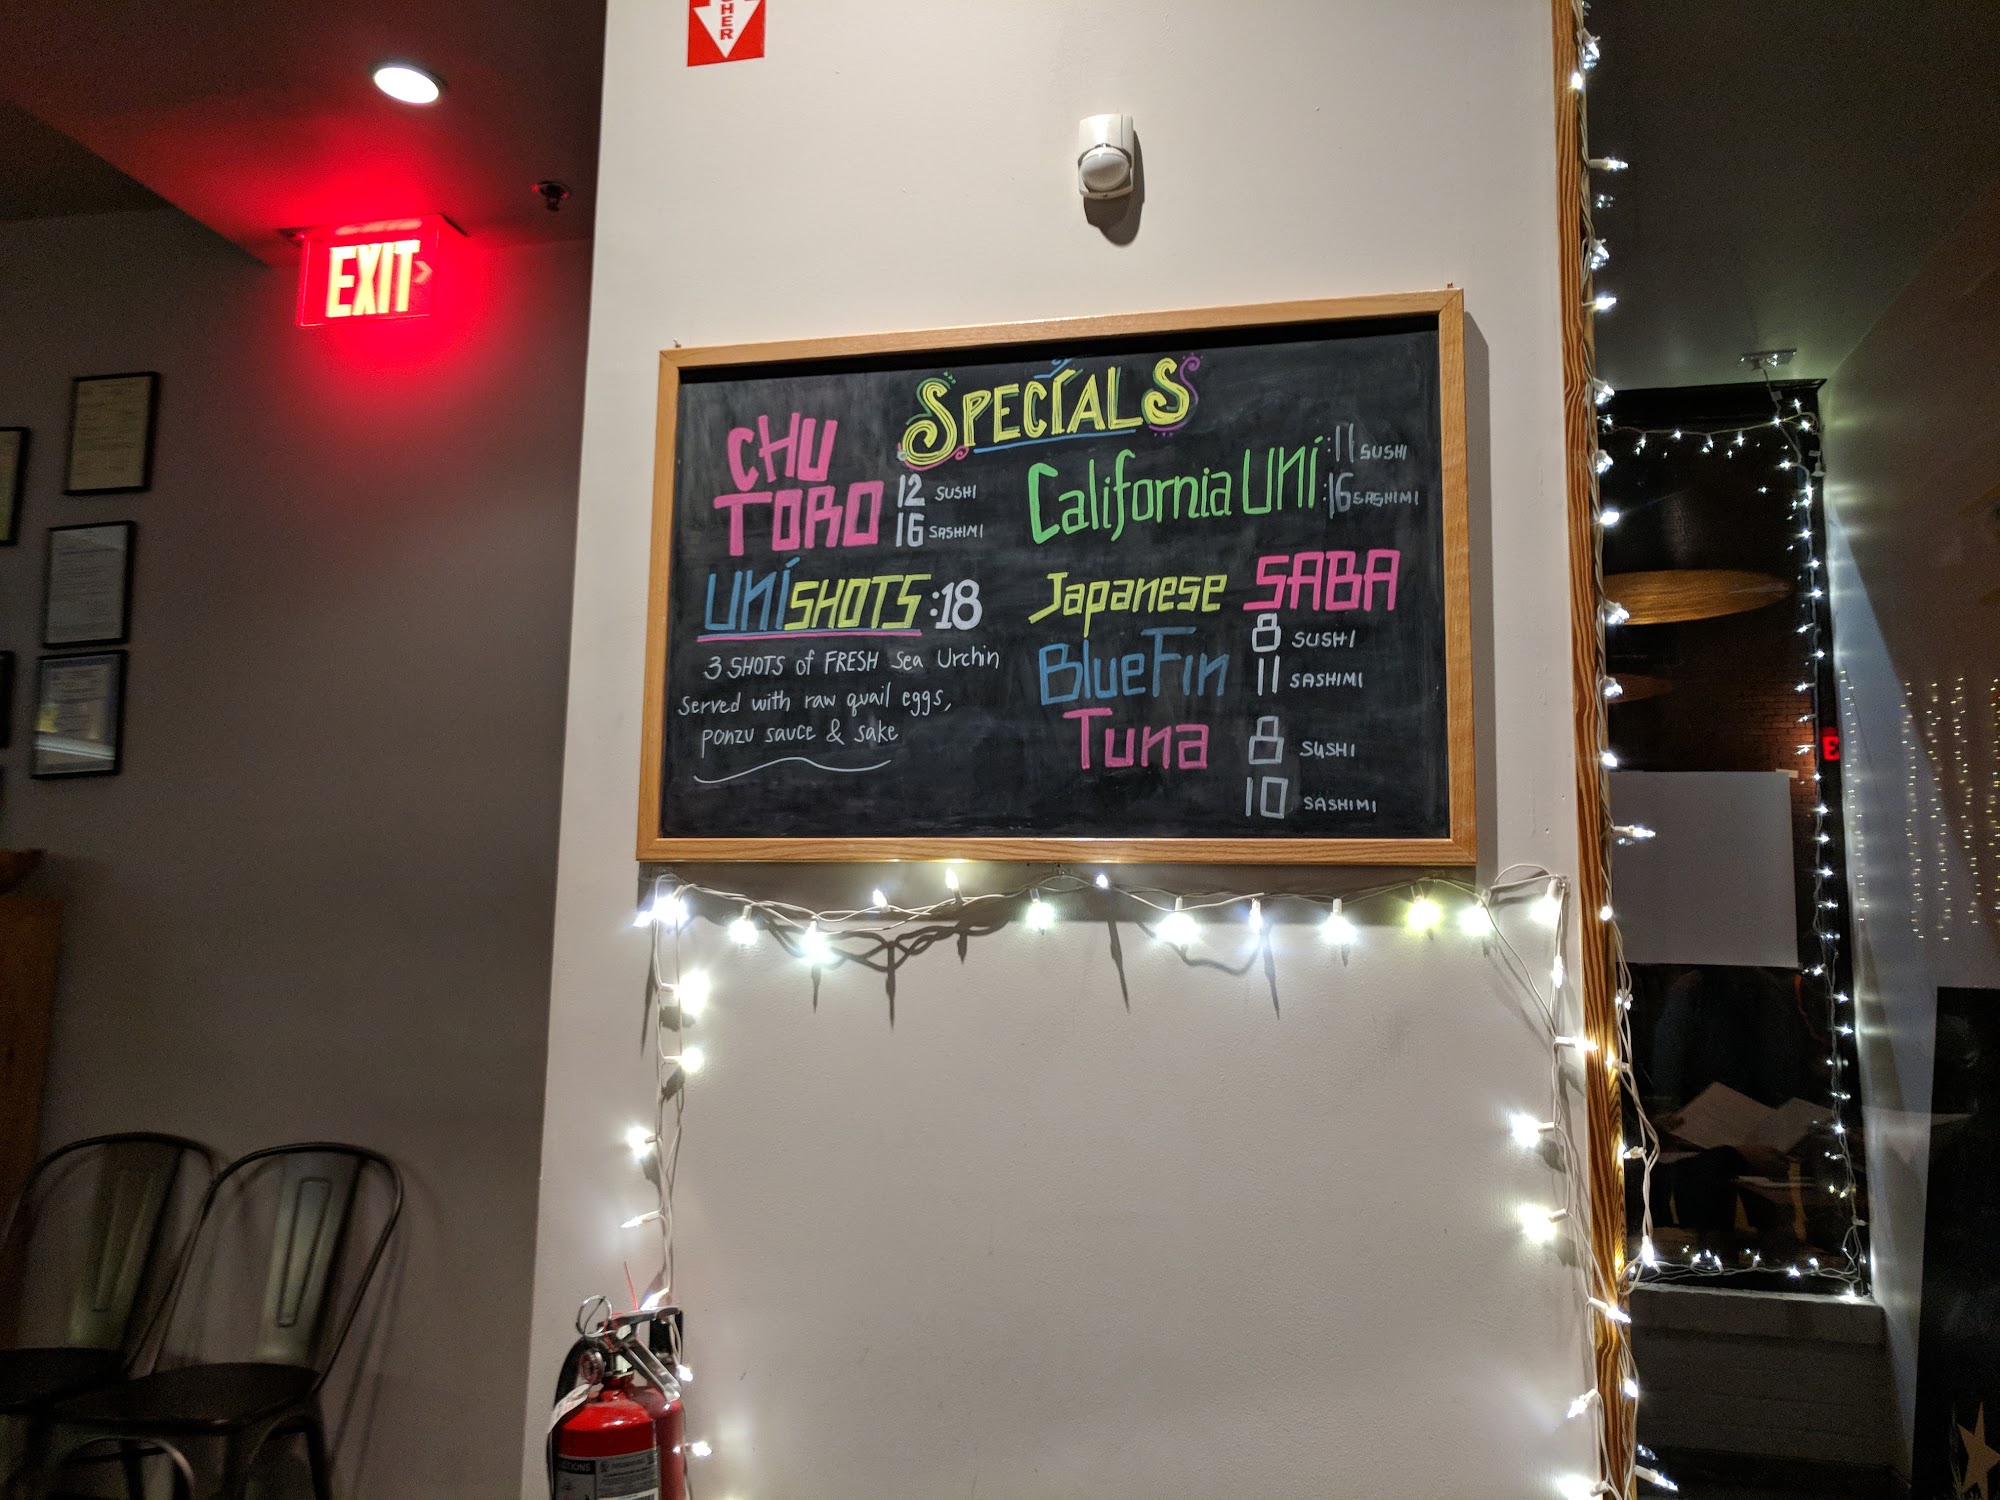 HER
EXIT
SPECIALS
CHU
TORO
12 SUSHI
16 SASHIMI
UNI SHOTS :18
3 SHOTS of FRESH Sea Urchin
Served with raw quail eggs,
ponzu sauce & sake
California UNI :11 SUSHI
:16 SASHIMI
Japanese SABA
8 SUSHI
11 SASHIMI
BlueFin
Tuna
8 SUSHI
10 SASHIMI